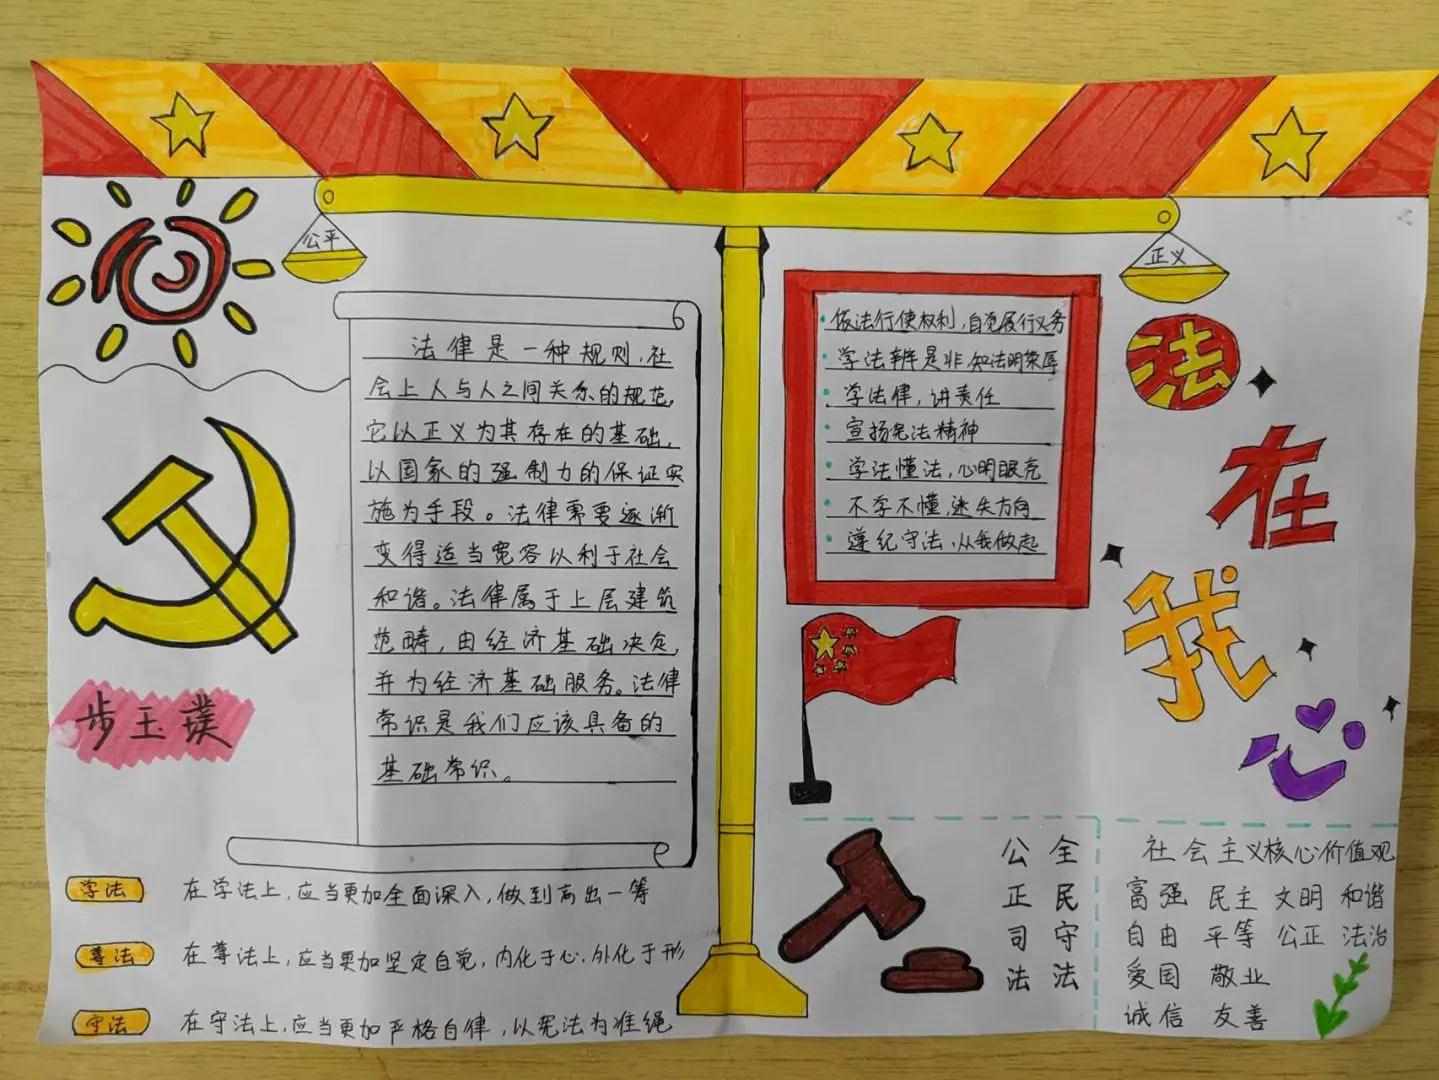 公平
正义
法律是一种规则，社
会上人与人之间关系的规范，
它以正义为其存在的基础，
以国家的强制力的保证实
施为手段。法律需要逐渐
变得适当宽容以利于社会
和谐。法律属于上层建筑
范畴，由经济基础决定，
并为经济基础服务。法律
常识是我们应该具备的
基础常识。
步玉璞
学法 在学法上，应当更加全面深入，做到高出一等
尊法 在尊法上，应当更加坚定自觉，内化于心，外化于形
守法 在守法上，应当更加严格自律，以宪法为准绳
依法行使权利，自觉履行义务
学法辨是非，知法明荣辱
学法律，讲责任
宣扬宪法精神
学法懂法，心明眼亮
不学不懂，迷失方向
遵纪守法，从我做起
法
在
我
心
公正司法
全民守法
社会主义核心价值观
富强 民主 文明 和谐
自由 平等 公正 法治
爱国 敬业
诚信 友善